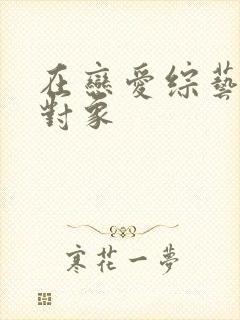 在戀愛綜藝
對象
寒花一夢